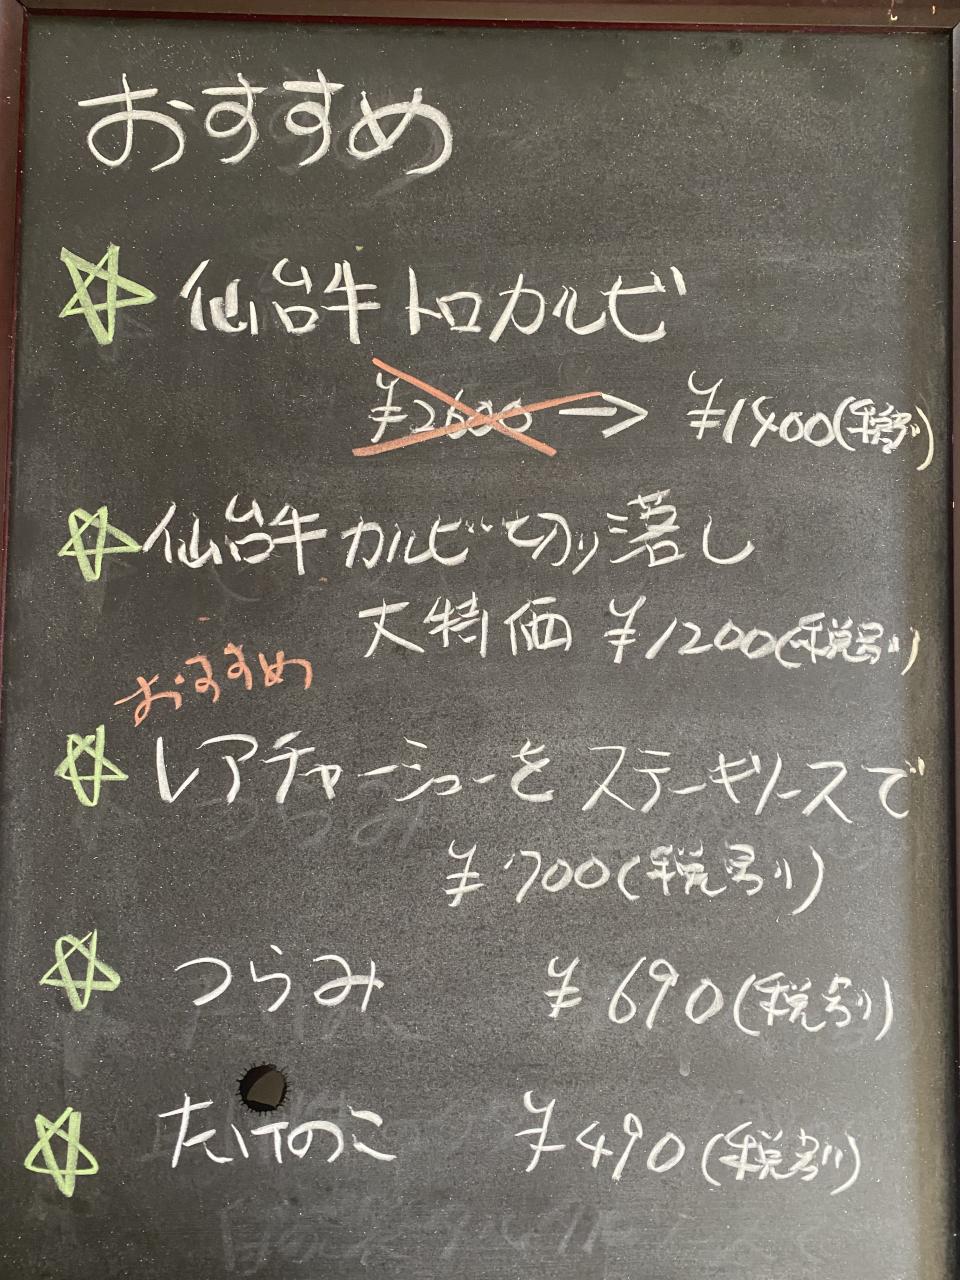 おすすめ
仙台牛トロカルビ
¥2600 → ¥1900(税別)
仙台牛カルビ切り落し
大特価 ¥1200(税別)
おすすめ
レアチャーシューをステーキソースで
¥700(税別)
つらみ ¥690(税別)
たけのこ ¥490(税別)